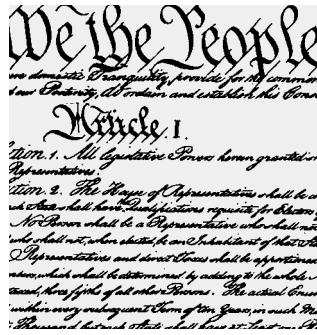 We the People
domestic Tranquility, provide for the common
our Posterity, do ordain and establish this Cons
Article I.
ction. 1. All legislative Powers herein granted
Representatives.
ction. 2. The House of Representatives shall be
each State shall have the Qualifications requisite for Electors
No Person shall be a Representative who shall not
who shall not, when elected, be an Inhabitant of that
Representatives and direct Taxes shall be apportioned
which shall be determined by adding to the whole
three fifths of all other Persons. The actual Enu
within every subsequent Term of ten Years, in such
Thousand, but each State shall have at Least one